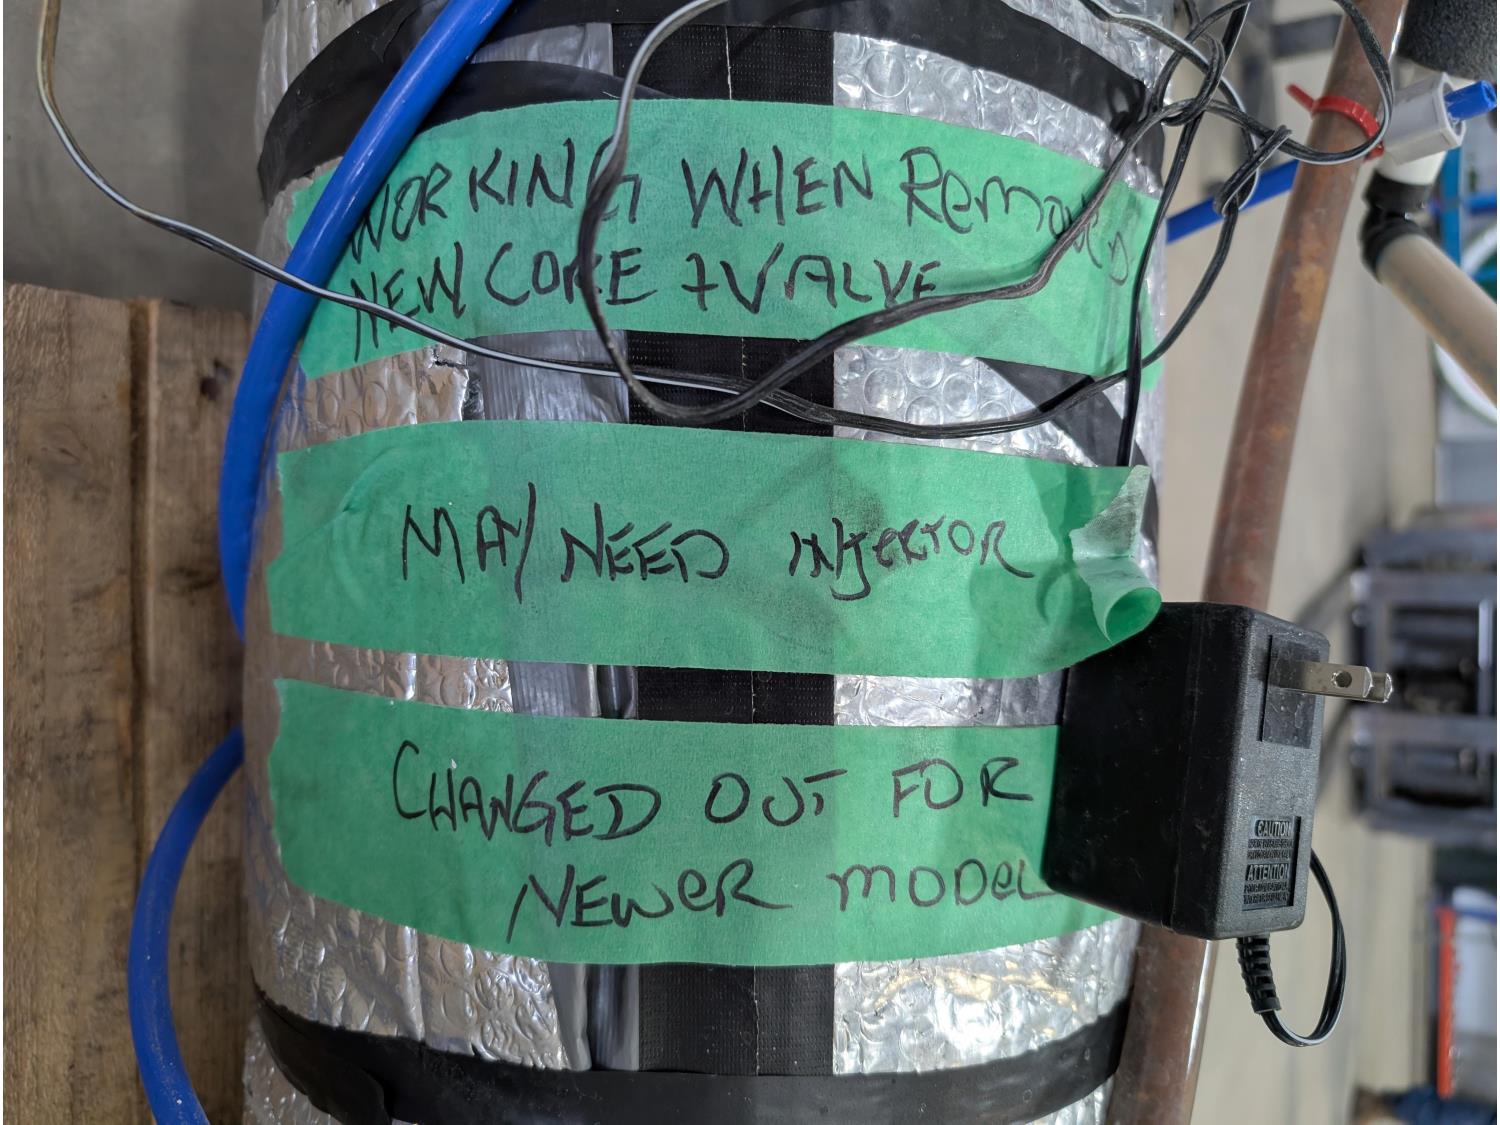 WORKING WHEN Removed
NEW CORE + VALVE
MAY NEED INJECTOR
CHANGED OUT FOR
NEWER MODEL
CAUTION
ATTENTION